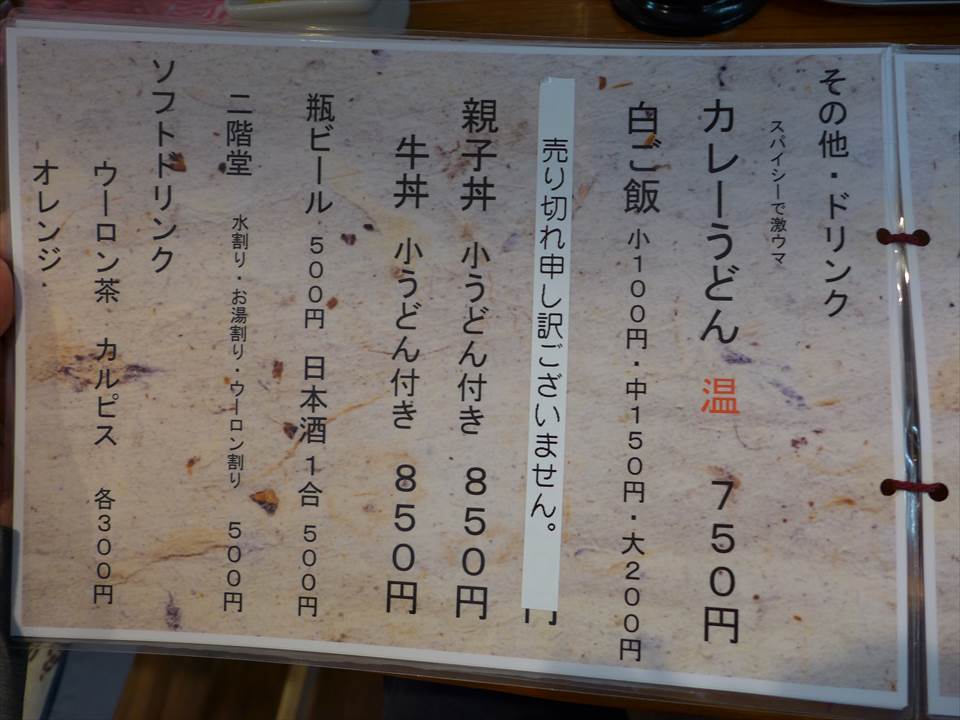 その他・ドリンク
スパイシーで激ウマ
カレーうどん 温 750円
白ご飯 小100円・中150円・大200円
売り切れ申し訳ございません。
円
親子丼 小うどん付き 850円
牛丼 小うどん付き 850円
瓶ビール 500円 日本酒 1合 500円
二階堂 水割り・お湯割り・ウーロン割り 500円
ソフトドリンク
ウーロン茶 カルピス 各300円
オレンジ・